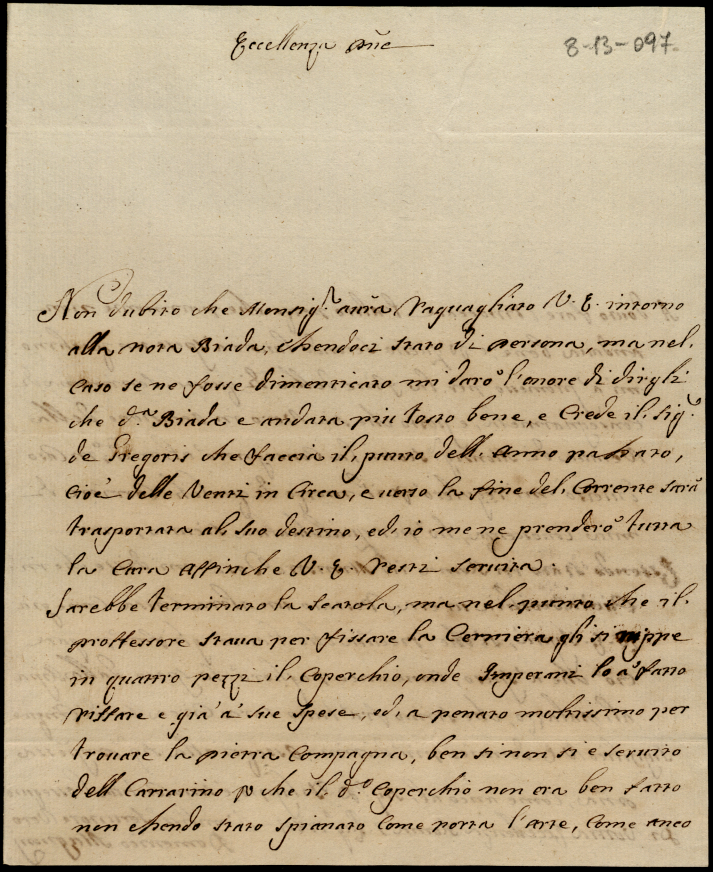 Eccellenza Pn̄e
8-13-097.
Non dubito che Monsig.r aurà raguagliato V. E. intorno
alla nota Biada, essendoci stato di persona, ma nel
caso se ne fosse dimenticato mi darò l'onore di dirgli
che d.a Biada e andata piu tosto bene, e Crede il Sig.r
de Gregoris che faccia il punto dell'Anno passato,
cioè delle Venti in Circa, e uerso la fine del Corrente sarà
trasportata al suo destino, ed io me ne prenderò tutta
la Cura affinche V. E. resti seruita.
Sarebbe terminato la Scatola, ma nel punto che il
proffessore staua per fissare la Cerniera gli si ruppe
in quattro pezzi il Coperchio, onde Imperani lo à fatto
riffare e già à sue spese, ed a penato moltissimo per
trouare la pietra Compagna, ben si non si e seruito
dell Carrarino p che il d.o Coperchio non era ben fatto
non essendo stato spianato come porta l'arte, come anco